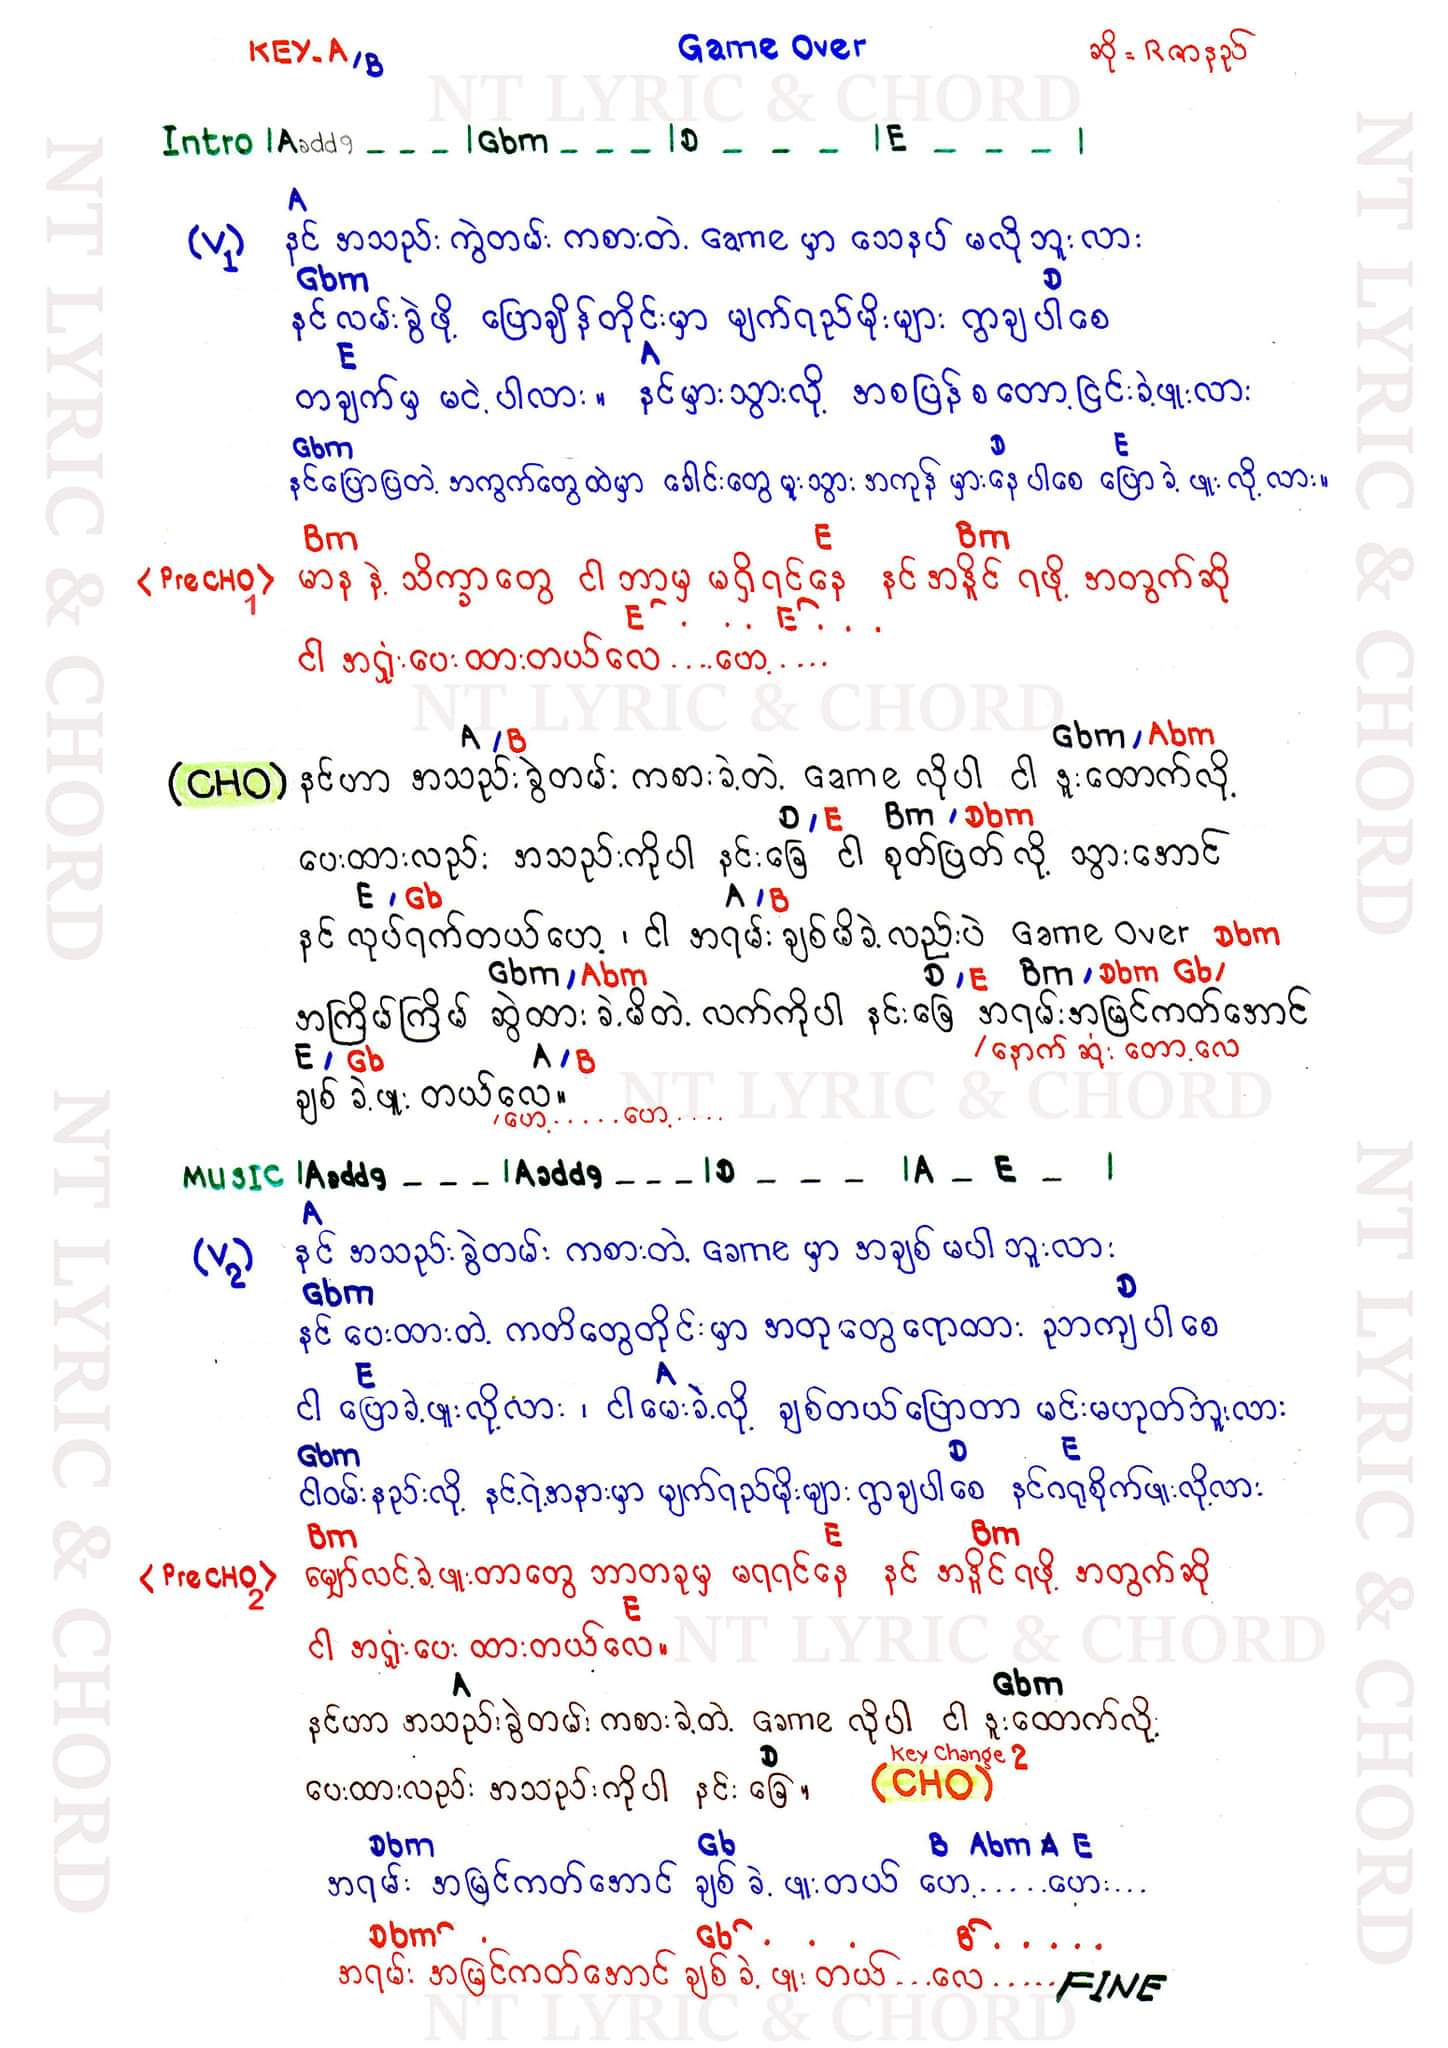 KEY-A/B Game Over ဆို = R ဇာနည်
NT LYRIC & CHORD
Intro |Aadd9 _ _ _ |Gbm _ _ _ |D _ _ _ |E _ _ _ |
A
(V1) နင် အသည်းကွဲတမ်း ကစားတဲ့ Game မှာ သေနပ် မလိုဘူးလား
Gbm D
နင်လမ်းခွဲဖို့ ပြောချိန်တိုင်းမှာ မျက်ရည်မိုးများ ရွာချပါစေ
E A
တချက်မှ မငဲ့ပါလား။ နင်မှားသွားလို့ အစပြန်စတော့ ငြင်းခဲ့ဖူးလား
Gbm D E
နင်ပြောပြတဲ့ အကွက်တွေထဲမှာ ခေါင်းတွေမူးသွား အကုန်မှားနေပါစေ ပြောခဲ့ဖူးလို့လား။
Bm E Bm
<PreCHO1> မာန နဲ့ သိက္ခာတွေ ငါ ဘာမှ မရှိရင်နေ နင် အနိူင် ရဖို့ အတွက်ဆို
E^ . . . E^ . . .
ငါ အရှုံးပေးထားတယ်လေ ....ဟေ့.....
NT LYRIC & CHORD
A/B Gbm/Abm
(CHO) နင်ဟာ အသည်းခွဲတမ်း ကစားခဲ့တဲ့ Game လိုပါ ငါ ဒူးထောက်လို့
D/E Bm/Dbm
ပေးထားလည်း အသည်းကိုပါ နင်းခြေ ငါ စုတ်ပြတ်လို့ သွားအောင်
E/Gb A/B
နင် လုပ်ရက်တယ်ဟေ့၊ ငါ အရမ်းချစ်မိခဲ့လည်းပဲ Game Over Dbm
Gbm/Abm D/E Bm/Dbm Gb/
အကြိမ်ကြိမ် ဆွဲထားခဲ့မိတဲ့ လက်ကိုပါ နင်းခြေ အရမ်းအမြင်ကတ်အောင်
E/Gb A/B /နောက်ဆုံးတော့လေ
ချစ်ခဲ့ဖူးတယ်လေ။
NT LYRIC & CHORD
/ဟေ့.....ဟေ့....
MUSIC |Aadd9 _ _ _ |Aadd9 _ _ _ |D _ _ _ |A _ E _ |
A
(V2) နင် အသည်းခွဲတမ်း ကစားတဲ့ Game မှာ အချစ် မပါဘူးလား
Gbm D
နင် ပေးထားတဲ့ ကတိတွေတိုင်းမှာ အတုတွေရောထား ဥဘကျပါစေ
E A
ငါ ပြောခဲ့ဖူးလို့လား၊ ငါမေးခဲ့လို့ ချစ်တယ်ပြောတာ မင်းမဟုတ်ဘူးလား
Gbm D E
ငါဝမ်းနည်းလို့ နင့်ရဲ့အနားမှာ မျက်ရည်မိုးများ ရွာချပါစေ နင်ဂရုစိုက်ဖူးလို့လား
Bm E Bm
<PreCHO2> မျှော်လင့်ခဲ့ဖူးတာတွေ ဘာတခုမှ မရရင်နေ နင် အနိူင်ရဖို့ အတွက်ဆို
E
ငါ အရှုံးပေး ထားတယ်လေ။
NT LYRIC & CHORD
A Gbm
နင်ဟာ အသည်းခွဲတမ်း ကစားခဲ့တဲ့ Game လိုပါ ငါ ဒူးထောက်လို့
D Key Change 2
ပေးထားလည်း အသည်းကိုပါ နင်းခြေ။ (CHO)
Dbm Gb B Abm A E
အရမ်း အမြင်ကတ်အောင် ချစ်ခဲ့ဖူးတယ် ဟေ့......ဟေး...
Dbm^ . Gb^ . . . B^ . . . . .
အရမ်း အမြင်ကတ်အောင် ချစ်ခဲ့ဖူးတယ်...လေ......FINE
NT LYRIC & CHORD
NT LYRIC & CHORD
NT LYRIC & CHORD
NT LYRIC & CHORD
NT LYRIC & CHORD